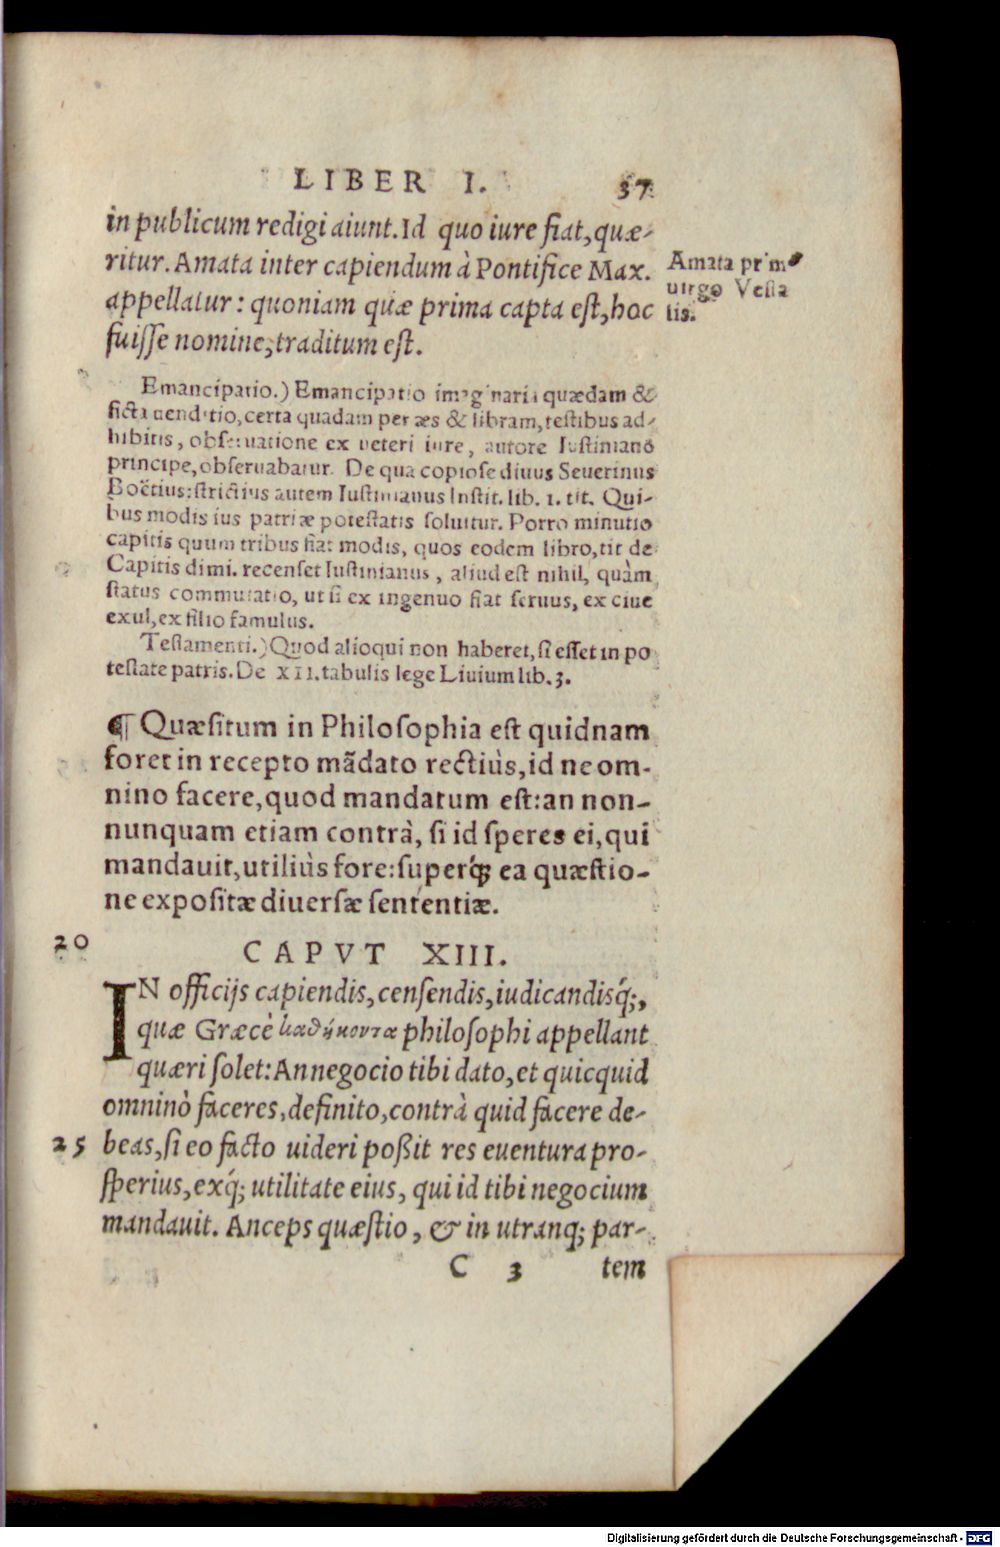 LIBER I. 37
in publicum redigi aiunt. Id quo iure fiat, quæ-
ritur. Amata inter capiendum à Pontifice Max.
appellatur: quoniam quæ prima capta est, hoc
fuisse nomine, traditum est.
Amata prima
uirgo Vesta
lis.
Emancipatio.) Emancipatio imaginaria quædam &
ficta uenditio, certa quadam per æs & libram, testibus ad-
hibitis, obseruatione ex ueteri iure, autore Iustiniano
principe, obseruabatur. De qua copiose diuus Seuerinus
Boëtius: strictius autem Iustinianus Instit. lib. 1. tit. Qui-
bus modis ius patriæ potestatis soluitur. Porro minutio
capitis quum tribus fiat modis, quos eodem libro, tit de
Capitis dimi. recenset Iustinianus, aliud est nihil, quàm
status commutatio, ut si ex ingenuo fiat seruus, ex ciue
exul, ex filio famulus.
Testamenti.) Quod alioqui non haberet, si esset in po
testate patris. De XII. tabulis lege Liuium lib. 3.
¶ Quæsitum in Philosophia est quidnam
foret in recepto mãdato rectiùs, id ne om-
nino facere, quod mandatum est: an non-
nunquam etiam contrà, si id speres ei, qui
mandauit, utiliùs fore: superq́; ea quæstio-
ne expositæ diuersæ sententiæ.
20 CAPVT XIII.
IN officijs capiendis, censendis, iudicandisq́;,
quæ Græcè καθήκοντα philosophi appellant
quæri solet: An negocio tibi dato, et quicquid
omninò faceres, definito, contrà quid facere de-
25 beas, si eo facto uideri poßit res euentura pro-
sperius, exq́; utilitate eius, qui id tibi negocium
mandauit. Anceps quæstio, & in utranq; par-
C 3 tem
Digitalisierung gefördert durch die Deutsche Forschungsgemeinschaft - DFG